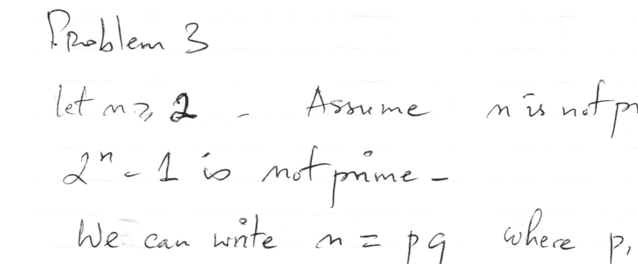 Problem 3
let n ≥ 2 - Assume n is not pr
2ⁿ - 1 is not prime -
We can write n = pq where p,